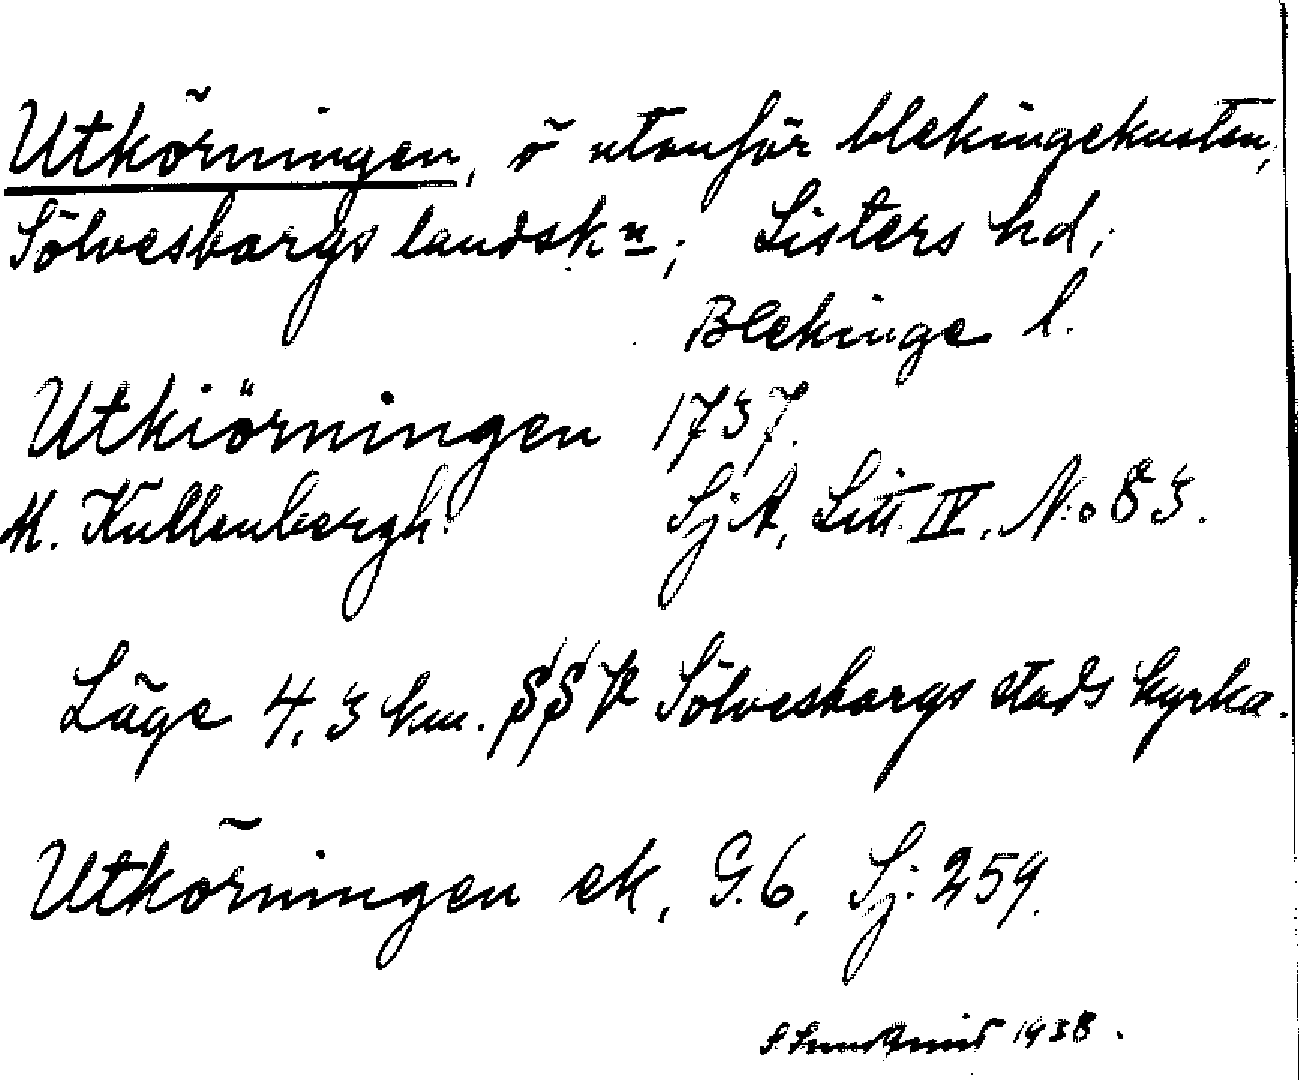 Utkörningen, ö utanför blekingekusten,
Sölvesborgs landskn; Listers hd;
Blekinge l.
Utkiörningen 1737.
M. Kullenbergh. SjA, Litt. IV. No 83.
Läge 4,3 km. SSV Sölvesborgs stads kyrka.
Utkörningen ek, G.6, Sj: 259.
1938.